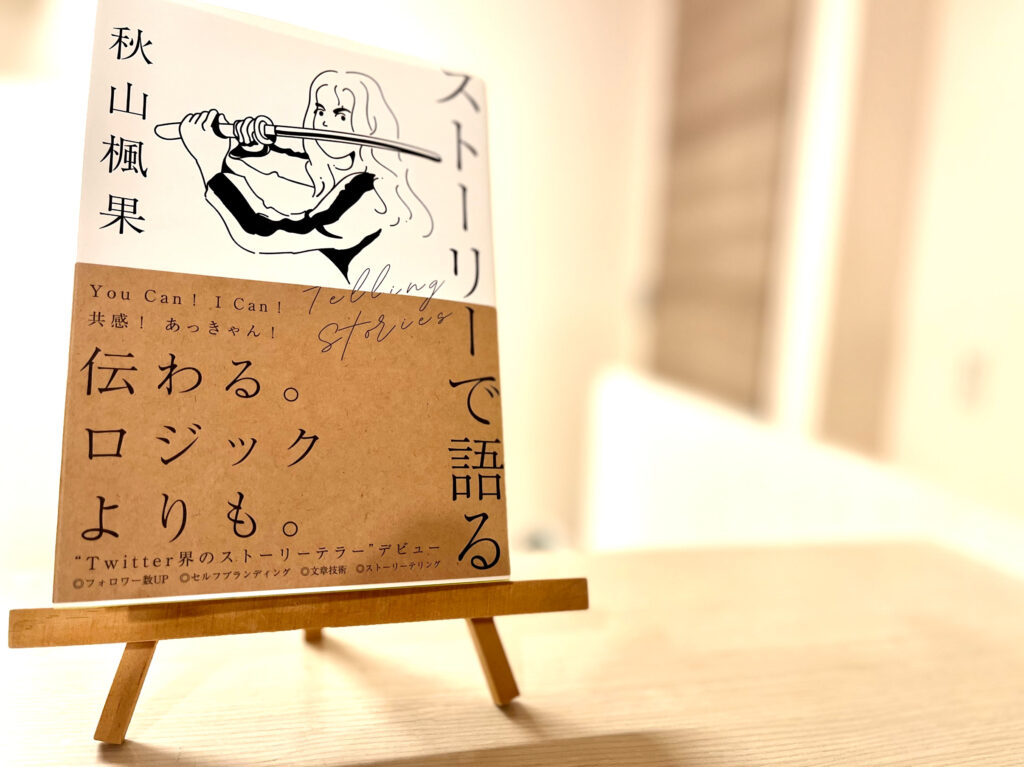 ストーリーで語る
秋山楓果
Telling
Stories
You Can! I Can!
共感! あっきゃん!
伝わる。
ロジック
よりも。
“Twitter界のストーリーテラー”デビュー
◎フォロワー数UP ◎セルフブランディング ◎文章技術 ◎ストーリーテリング